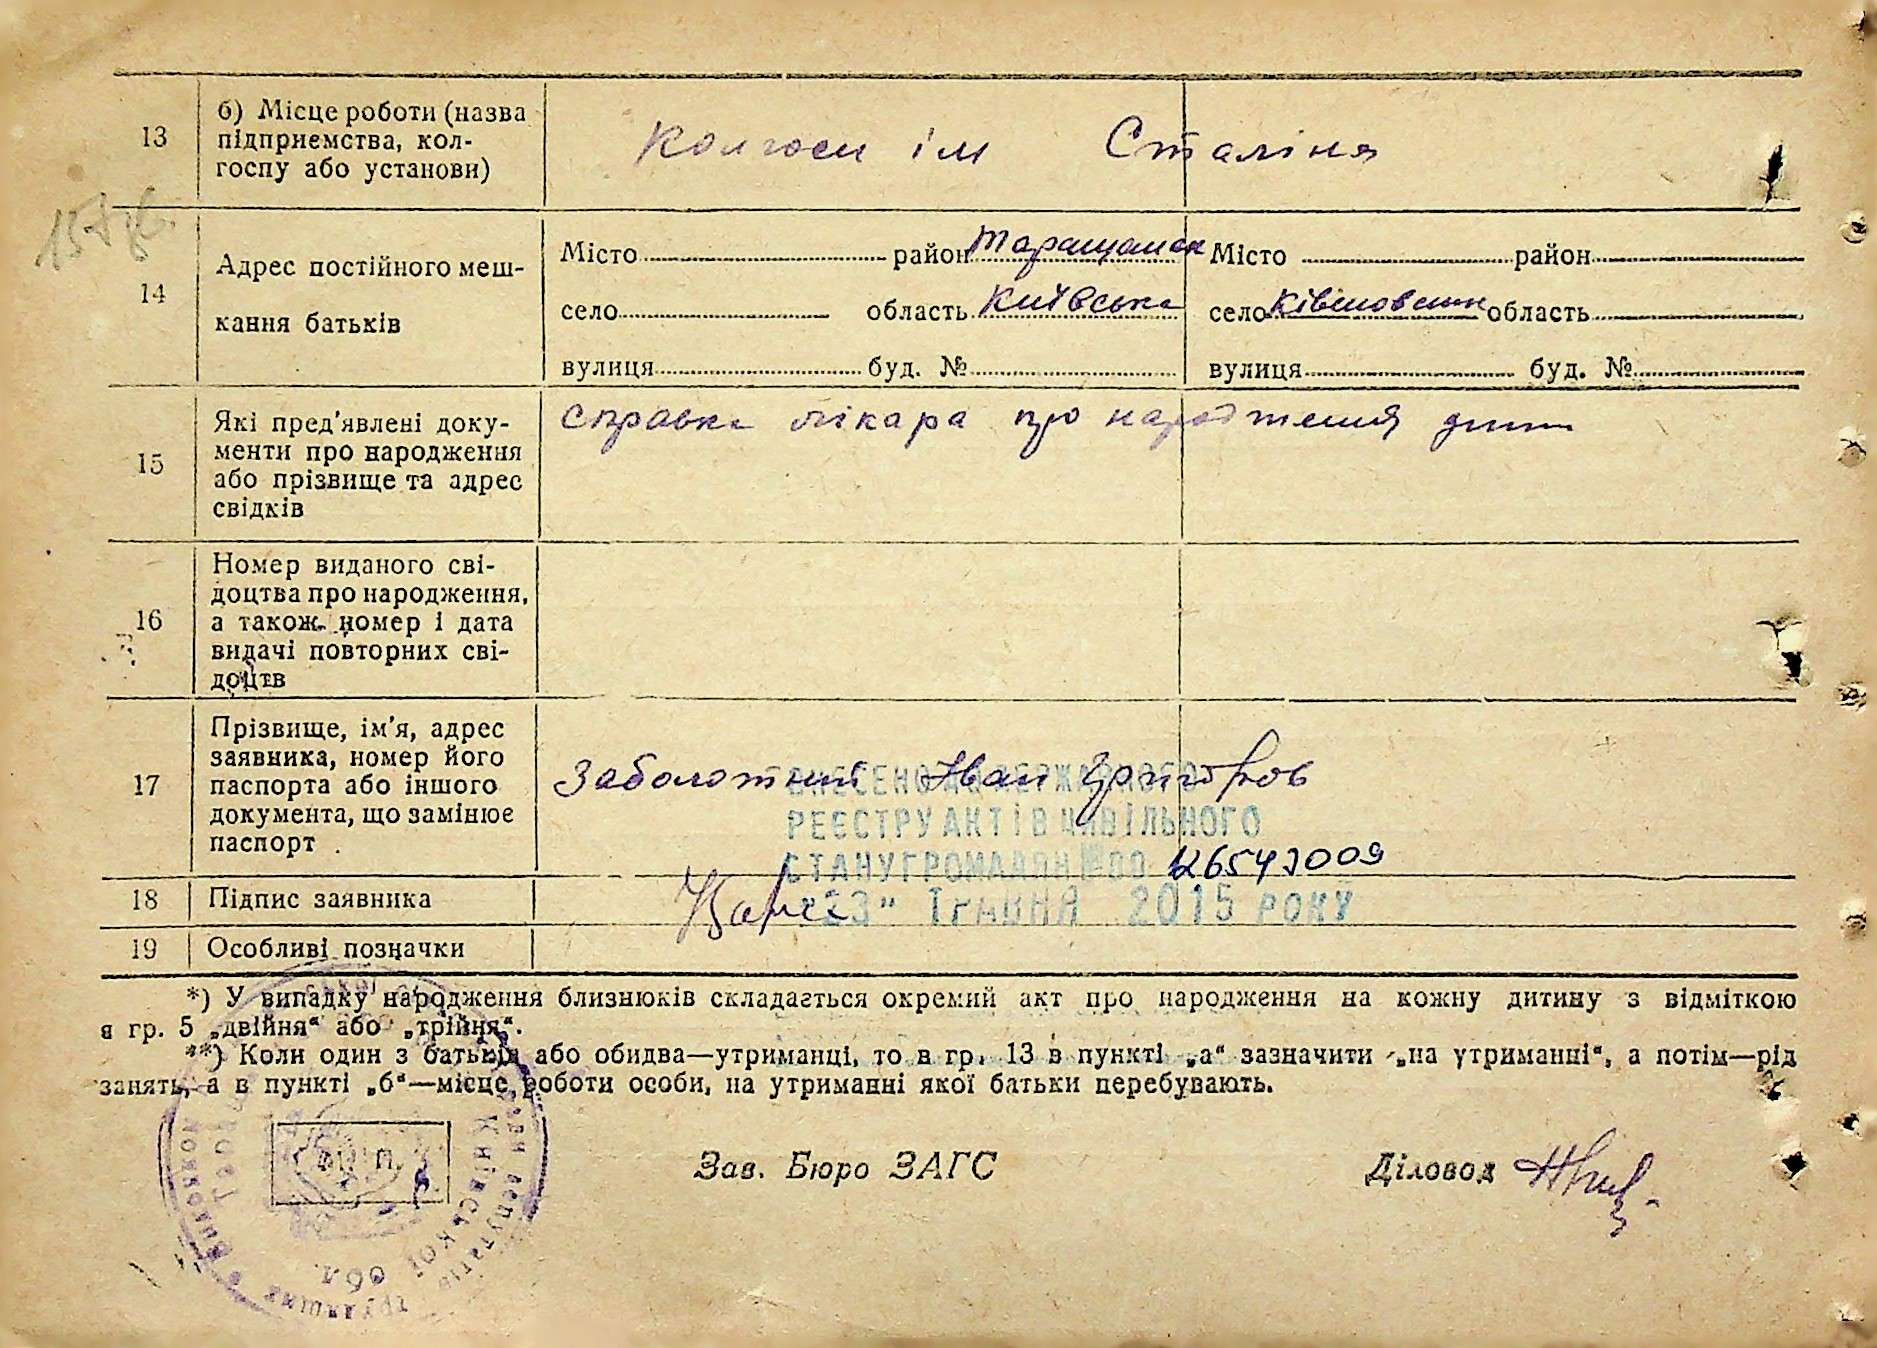 13
б) Місце роботи (назва
підприємства, кол-
госпу або установи)
Колгосп ім Сталіна
14
Адрес постійного меш-
кання батьків
Місто район Таращанськ
село область Київська
вулиця буд. №
Місто район
село Ківшовата область
вулиця буд. №
15
Які пред'явлені доку-
менти про народження
або прізвище та адрес
свідків
справка лікара про народження
16
Номер виданого сві-
доцтва про народження,
а також номер і дата
видачі повторних сві-
доцтв
17
Прізвище, ім'я, адрес
заявника, номер його
паспорта або іншого
документа, що замінює
паспорт
Заболотний Іван Григоров
ВНЕСЕНО ДО ДЕРЖАВНОГО
РЕЄСТРУ АКТІВ ЦИВІЛЬНОГО
СТАНУ ГРОМАДЯН №00 126547009
"23" ТРАВНЯ 2015 РОКУ
18
Підпис заявника
19
Особливі позначки
*) У випадку народження близнюків складається окремий акт про народження на кожну дитину з відміткою
в гр. 5 „двійня“ або „трійня“.
**) Коли один з батьків або обидва—утриманці, то в гр. 13 в пункті „а“ зазначити „на утриманні“, а потім—рід
занять, а в пункті „б“—місце роботи особи, на утриманні якої батьки перебувають.
М. П.
Зав. Бюро ЗАГС
Діловод
Київської обл.